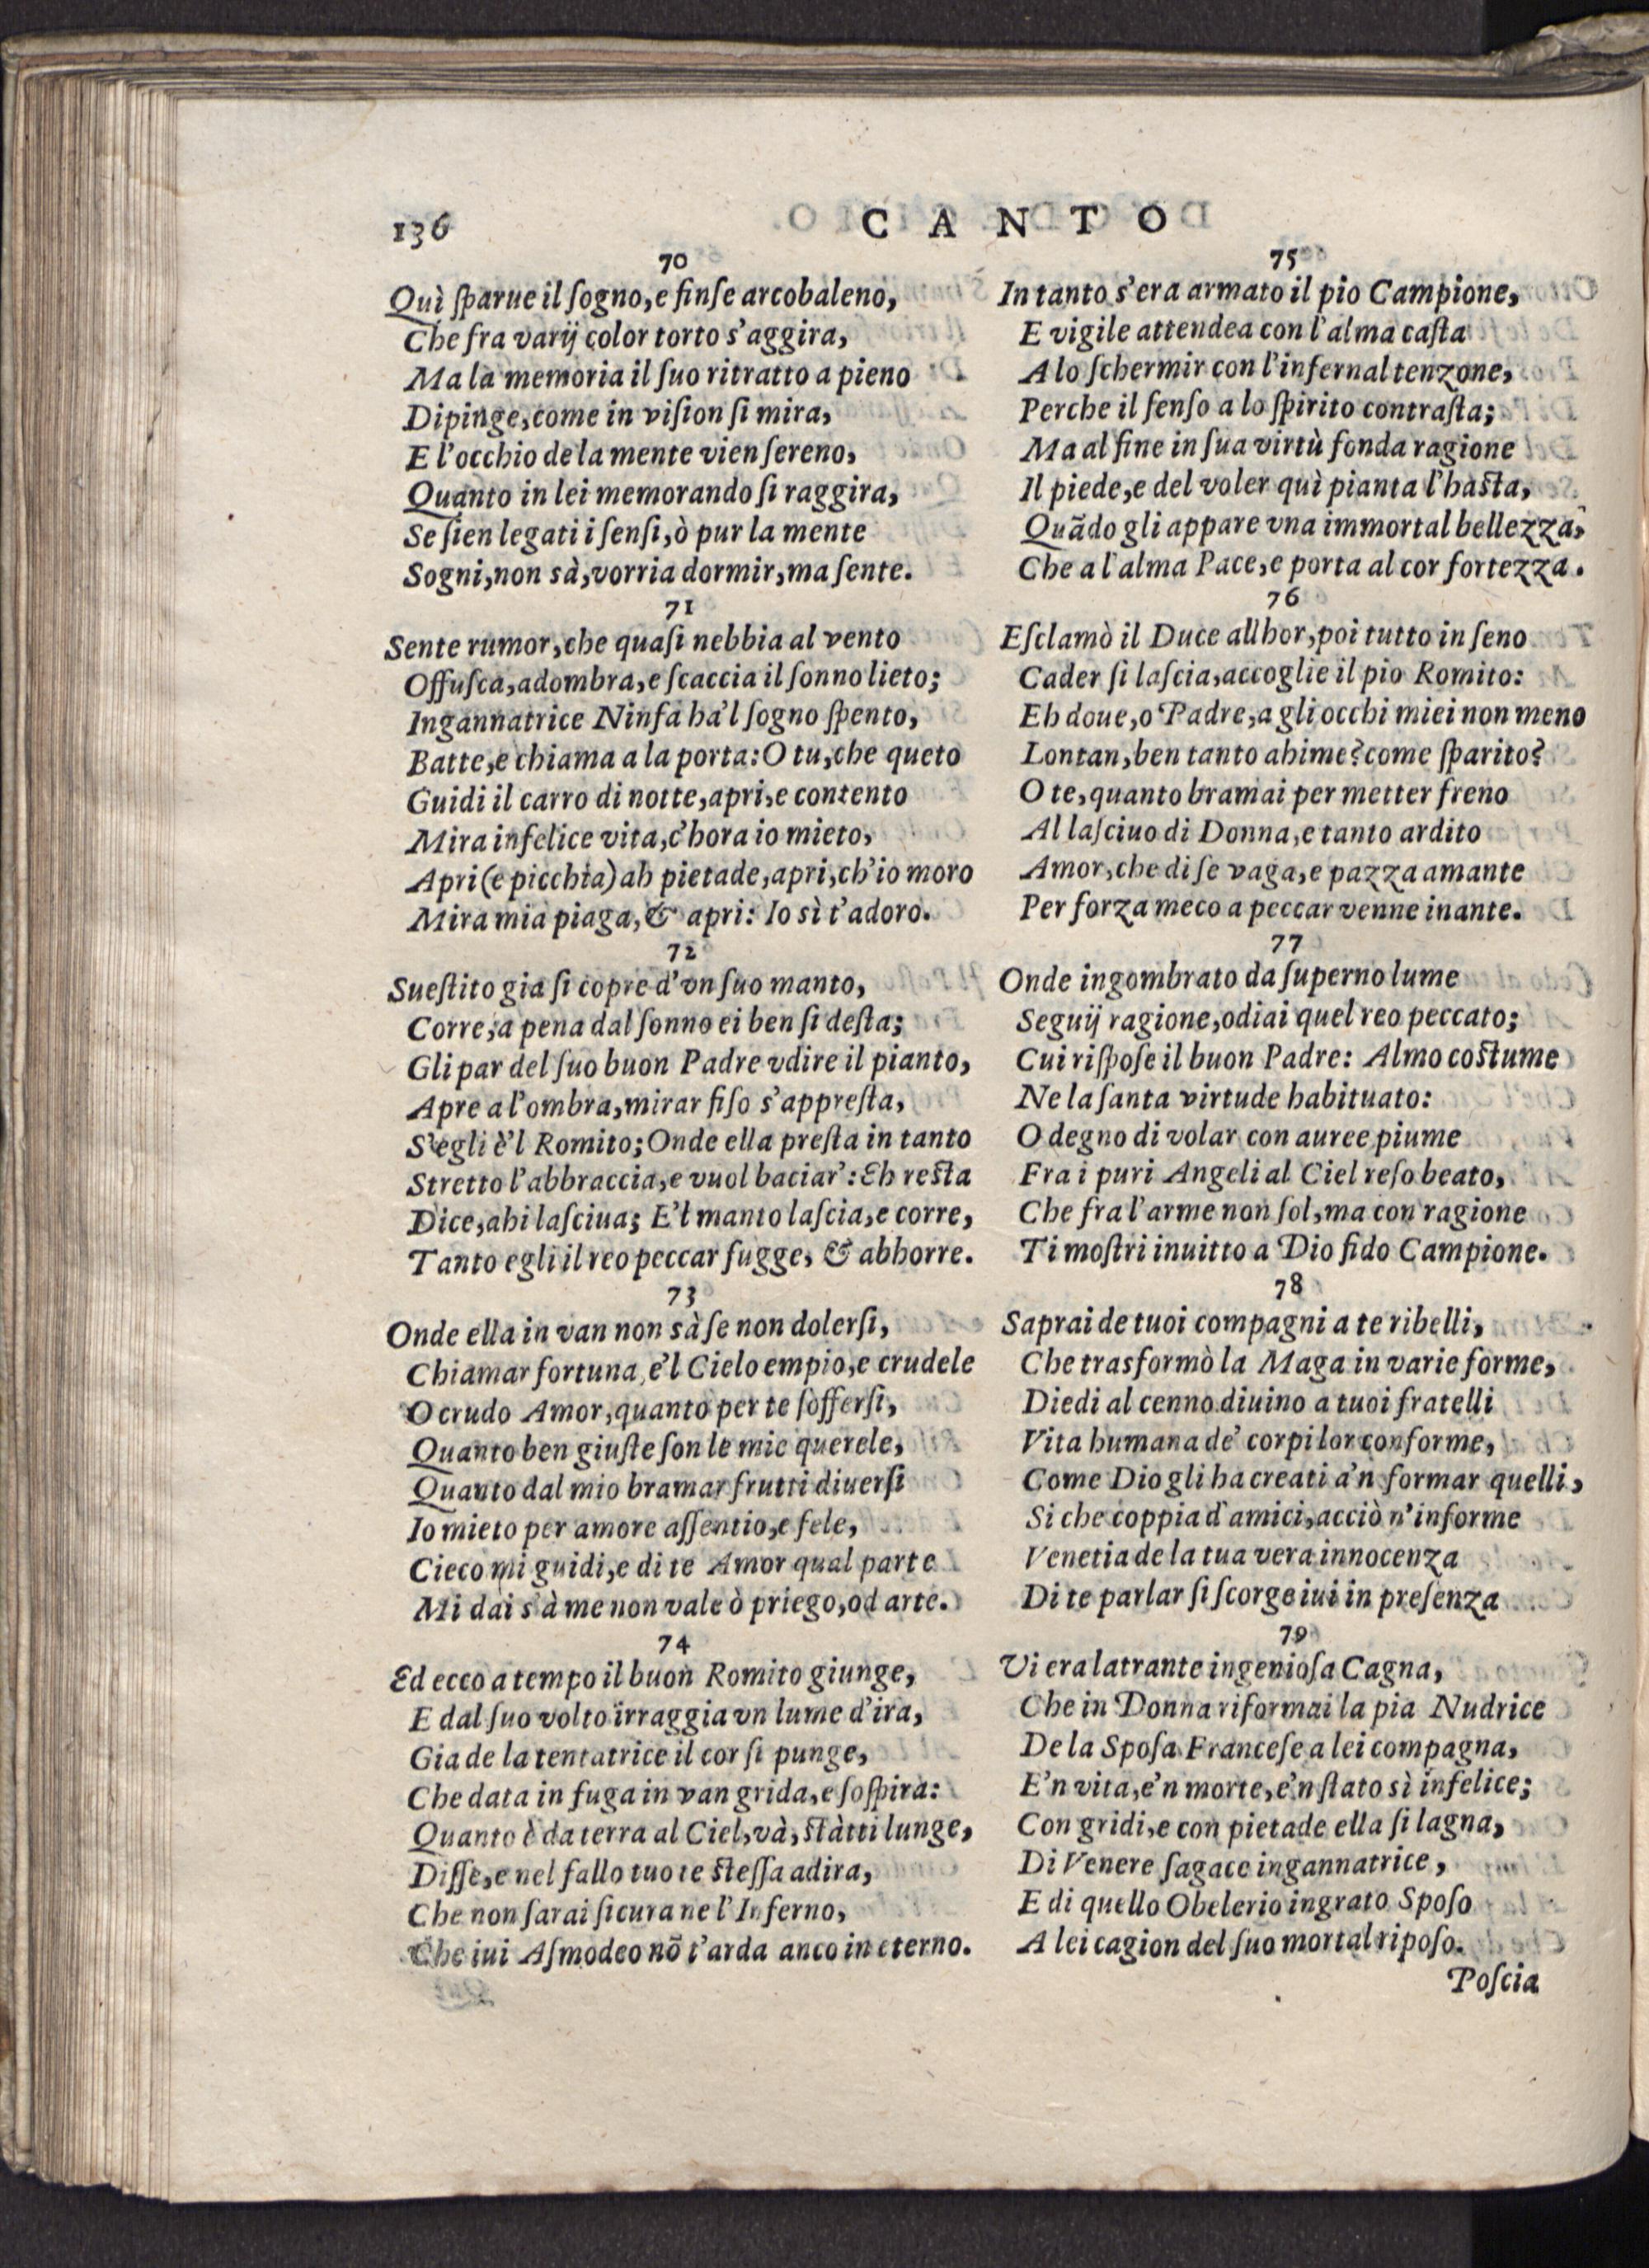 136
CANTO
70
Quì ſparue il ſogno, e finſe arcobaleno,
Che fra varij color torto s'aggira,
Ma la memoria il ſuo ritratto a pieno
Dipinge, come in viſion ſi mira,
E l'occhio de la mente vien ſereno,
Quanto in lei memorando ſi raggira,
Se ſien legati i ſenſi, ò pur la mente
Sogni, non sà, vorria dormir, ma ſente.
71
Sente rumor, che quaſi nebbia al vento
Offuſca, adombra, e ſcaccia il ſonno lieto;
Ingannatrice Ninfa ha'l ſogno ſpento,
Batte, e chiama a la porta: O tu, che queto
Guidi il carro di notte, apri, e contento
Mira infelice vita, c'hora io mieto,
Apri (e picchia) ah pietade, apri, ch'io moro
Mira mia piaga, & apri: Io sì t'adoro.
72
Sueſtito gia ſi copre d'vn ſuo manto,
Corre, a pena dal ſonno ei ben ſi deſta;
Gli par del ſuo buon Padre vdire il pianto,
Apre a l'ombra, mirar fiſo s'appreſta,
S'egli è'l Romito; Onde ella preſta in tanto
Stretto l'abbraccia, e vuol baciar': Eh reſta
Dice, ahi laſciua; E'l manto laſcia, e corre,
Tanto egli il reo peccar fugge, & abhorre.
73
Onde ella in van non sà ſe non dolerſi,
Chiamar fortuna, e'l Cielo empio, e crudele
O crudo Amor, quanto per te ſofferſi,
Quanto ben giuſte ſon le mie querele,
Quanto dal mio bramar frutti diuerſi
Io mieto per amore aſſentio, e fele,
Cieco mi guidi, e di te Amor qual parte
Mi dai s'à me non vale ò priego, od arte.
74
Ed ecco a tempo il buon Romito giunge,
E dal ſuo volto irraggia vn lume d'ira,
Gia de la tentatrice il cor ſi punge,
Che data in fuga in van grida, e ſoſpira:
Quanto è da terra al Ciel, và, ſtàtti lunge,
Diſſe, e nel fallo tuo te ſteſſa adira,
Che non ſarai ſicura ne l'Inferno,
Che iui Aſmodeo nõ t'arda anco in eterno.
75
In tanto s'era armato il pio Campione,
E vigile attendea con l'alma caſta
A lo ſchermir con l'infernal tenzone,
Perche il ſenſo a lo ſpirito contraſta;
Ma al fine in ſua virtù fonda ragione
Il piede, e del voler quì pianta l'haſta,
Quãdo gli appare vna immortal bellezza,
Che a l'alma Pace, e porta al cor fortezza.
76
Eſclamò il Duce allhor, poi tutto in ſeno
Cader ſi laſcia, accoglie il pio Romito:
Eh doue, o Padre, a gli occhi miei non meno
Lontan, ben tanto ahime? come ſparito?
O te, quanto bramai per metter freno
Al laſciuo di Donna, e tanto ardito
Amor, che di ſe vaga, e pazza amante
Per forza meco a peccar venne inante.
77
Onde ingombrato da ſuperno lume
Seguij ragione, odiai quel reo peccato;
Cui riſpoſe il buon Padre: Almo coſtume
Ne la ſanta virtude habituato:
O degno di volar con auree piume
Fra i puri Angeli al Ciel reſo beato,
Che fra l'arme non ſol, ma con ragione
Ti moſtri inuitto a Dio fido Campione.
78
Saprai de tuoi compagni a te ribelli,
Che trasformò la Maga in varie forme,
Diedi al cenno diuino a tuoi fratelli
Vita humana de' corpi lor conforme,
Come Dio gli ha creati a'n formar quelli,
Si che coppia d'amici, acciò n'informe
Venetia de la tua vera innocenza
Di te parlar ſi ſcorge iui in preſenza
79
Vi era latrante ingenioſa Cagna,
Che in Donna riformai la pia Nudrice
De la Spoſa Franceſe a lei compagna,
E'n vita, e'n morte, e'n ſtato sì infelice;
Con gridi, e con pietade ella ſi lagna,
Di Venere ſagace ingannatrice,
E di quello Obelerio ingrato Spoſo
A lei cagion del ſuo mortal ripoſo.
Poſcia